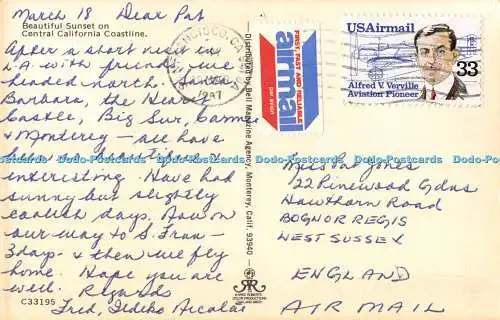 March 18 Dear Pat
Beautiful Sunset on
Central California Coastline.
After a short visit in
L.A. with friends, we
headed north. Santa
Barbara, the Hearst
Castle, Big Sur, Carmel
& Monterey – all have
been beautiful &
interesting. Have had
sunny but slightly
coolish days. Now on
our way to S. Fran –
3 days – & then we fly
home. Hope you are
well. Regards
Fred, Ildiko
C33195
Distributed by Bell Magazine Agency, Monterey, Calif. 93940
FIRST, FAST AND RELIABLE
airmail
par avion
USAirmail
33
Alfred V. Verville
Aviation Pioneer
Miss Pat Jones
22 Pinewood Gdns
Hawthorn Road
BOGNOR REGIS
WEST SUSSEX
ENGLAND
AIR MAIL
Dodo-Postcards Dodo-Postcards Dodo-Postcards Dodo-Postcards Dodo-Postcards